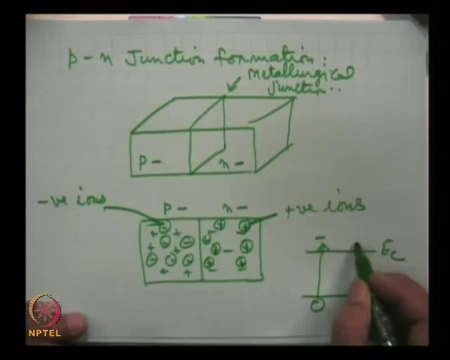 p - n Junction formation:
metallurgical
junction..
p - n -
-ve ions p - n - +ve ions
Ec
NPTEL